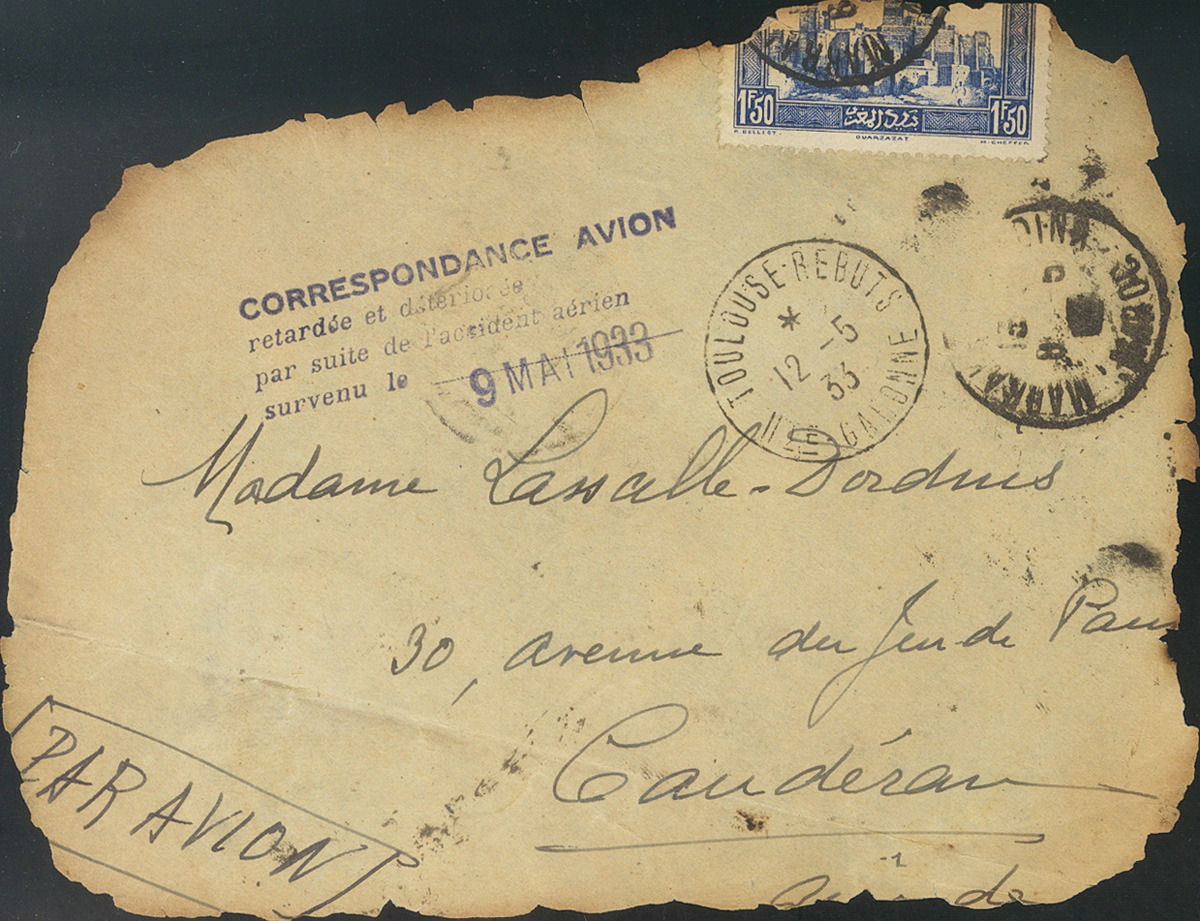 1F50 بريد المغرب 1F50
OUARZAZAT
CORRESPONDANCE AVION
retardée et détériorée
par suite de l'accident aérien
survenu le 9 MAI 1933
TOULOUSE-REBUTS
* 12 -5
33
HTE GARONNE
MAROC
Madame Lassalle-Dordins
30, avenue du Jeu de Pau
Caudéran
PAR AVION